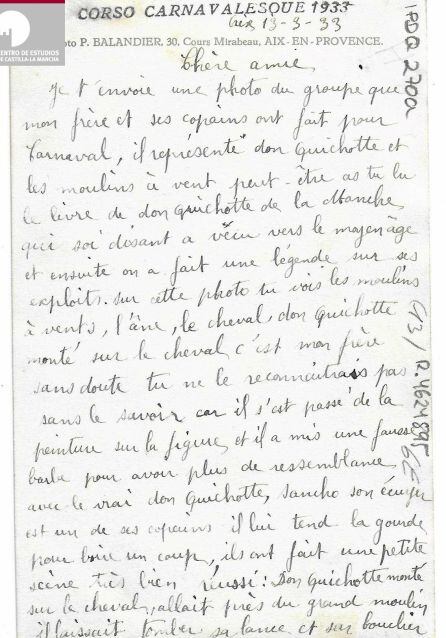 CORSO CARNAVALESQUE 1933
Aix 13-3-33
CENTRO DE ESTUDIOS
DE CASTILLA-LA MANCHA
Photo P. BALANDIER, 30, Cours Mirabeau, AIX-EN-PROVENCE.
Chère amie,
Je t'envoie une photo du groupe que
mon frère et ses copains ont fait pour
Carnaval, il représente don Quichotte et
les moulins à vent peut-être as tu lu
le livre de don Quichotte de la Manche,
qui soi disant a vécu vers le moyen âge
et ensuite on a fait une légende sur ses
exploits. sur cette photo tu vois les moulins
à vents, l'âne, le cheval, don Quichotte
monté sur le cheval c'est mon frère
sans doute tu ne le reconnaitrais pas
sans le savoir car il s'est passé de la
peinture sur la figure et il a mis une fausse
barbe pour avoir plus de ressemblance
avec le vrai don Quichotte, sancho son écuyer
est un de ses copains il lui tend la gourde
pour boire un coup, ils ont fait une petite
scène très bien réussi: Don Quichotte monté
sur le cheval, allait près du grand moulin
il laissait tomber sa lance et son bouclier
R.462489